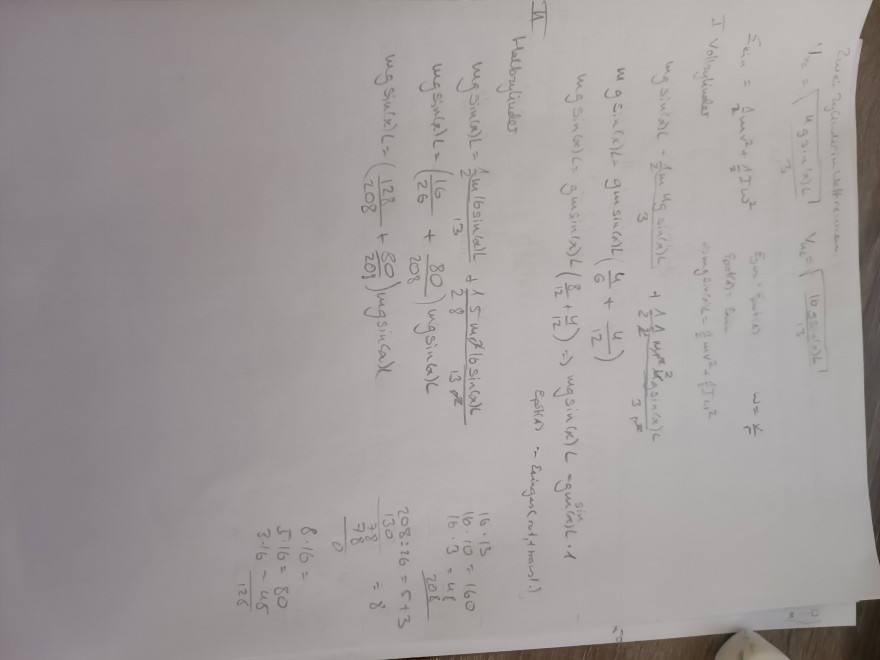 Zwei Zylinder im Wettrennen
V_VZ = √(4g sin(α)L / 3)   V_HZ = √(16g sin(α)L / 13)
E_kin = 1/2 mv² + 1/2 Iω²   ω = v/r
I Vollzylinder
=> mg sin(α)L = 1/2 mv² + 1/2 Iω²
mg sin(α)L = 1/2 m 4g sin(α)L / 3 + 1/2 1/2 mr² 4g sin(α)L / 3 r²
mg sin(α)L = gm sin(α)L (4/6 + 4/12)
mg sin(α)L = gm sin(α)L (8/12 + 4/12) => mg sin(α)L = gm sin(α)L · 1
II Halbzylinder
mg sin(α)L = 1/2 m 16 sin(α)L / 13 + 1/2 5/8 mr² 16 sin(α)L / 13 r²
mg sin(α)L = (16/26 + 80/208) mg sin(α)L
mg sin(α)L = (128/208 + 80/208) mg sin(α)L
16 · 13
16 · 10 = 160
16 · 3 = 48
208
208 : 26 = 5+3 = 8
130
78
78
0
8 · 16 =
5 · 16 = 80
3 · 16 = 48
128